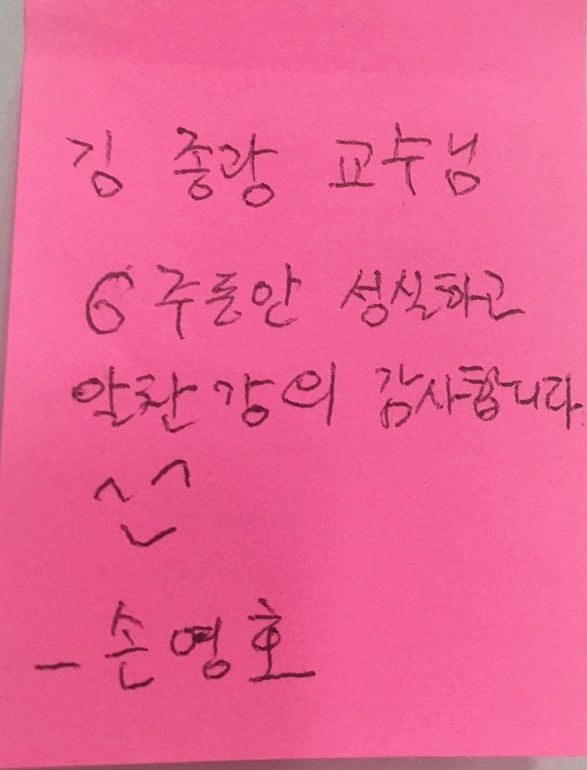 김 종광 교수님
6주동안 성실하고
알찬 강의 감사합니다.
^_^
- 손영호